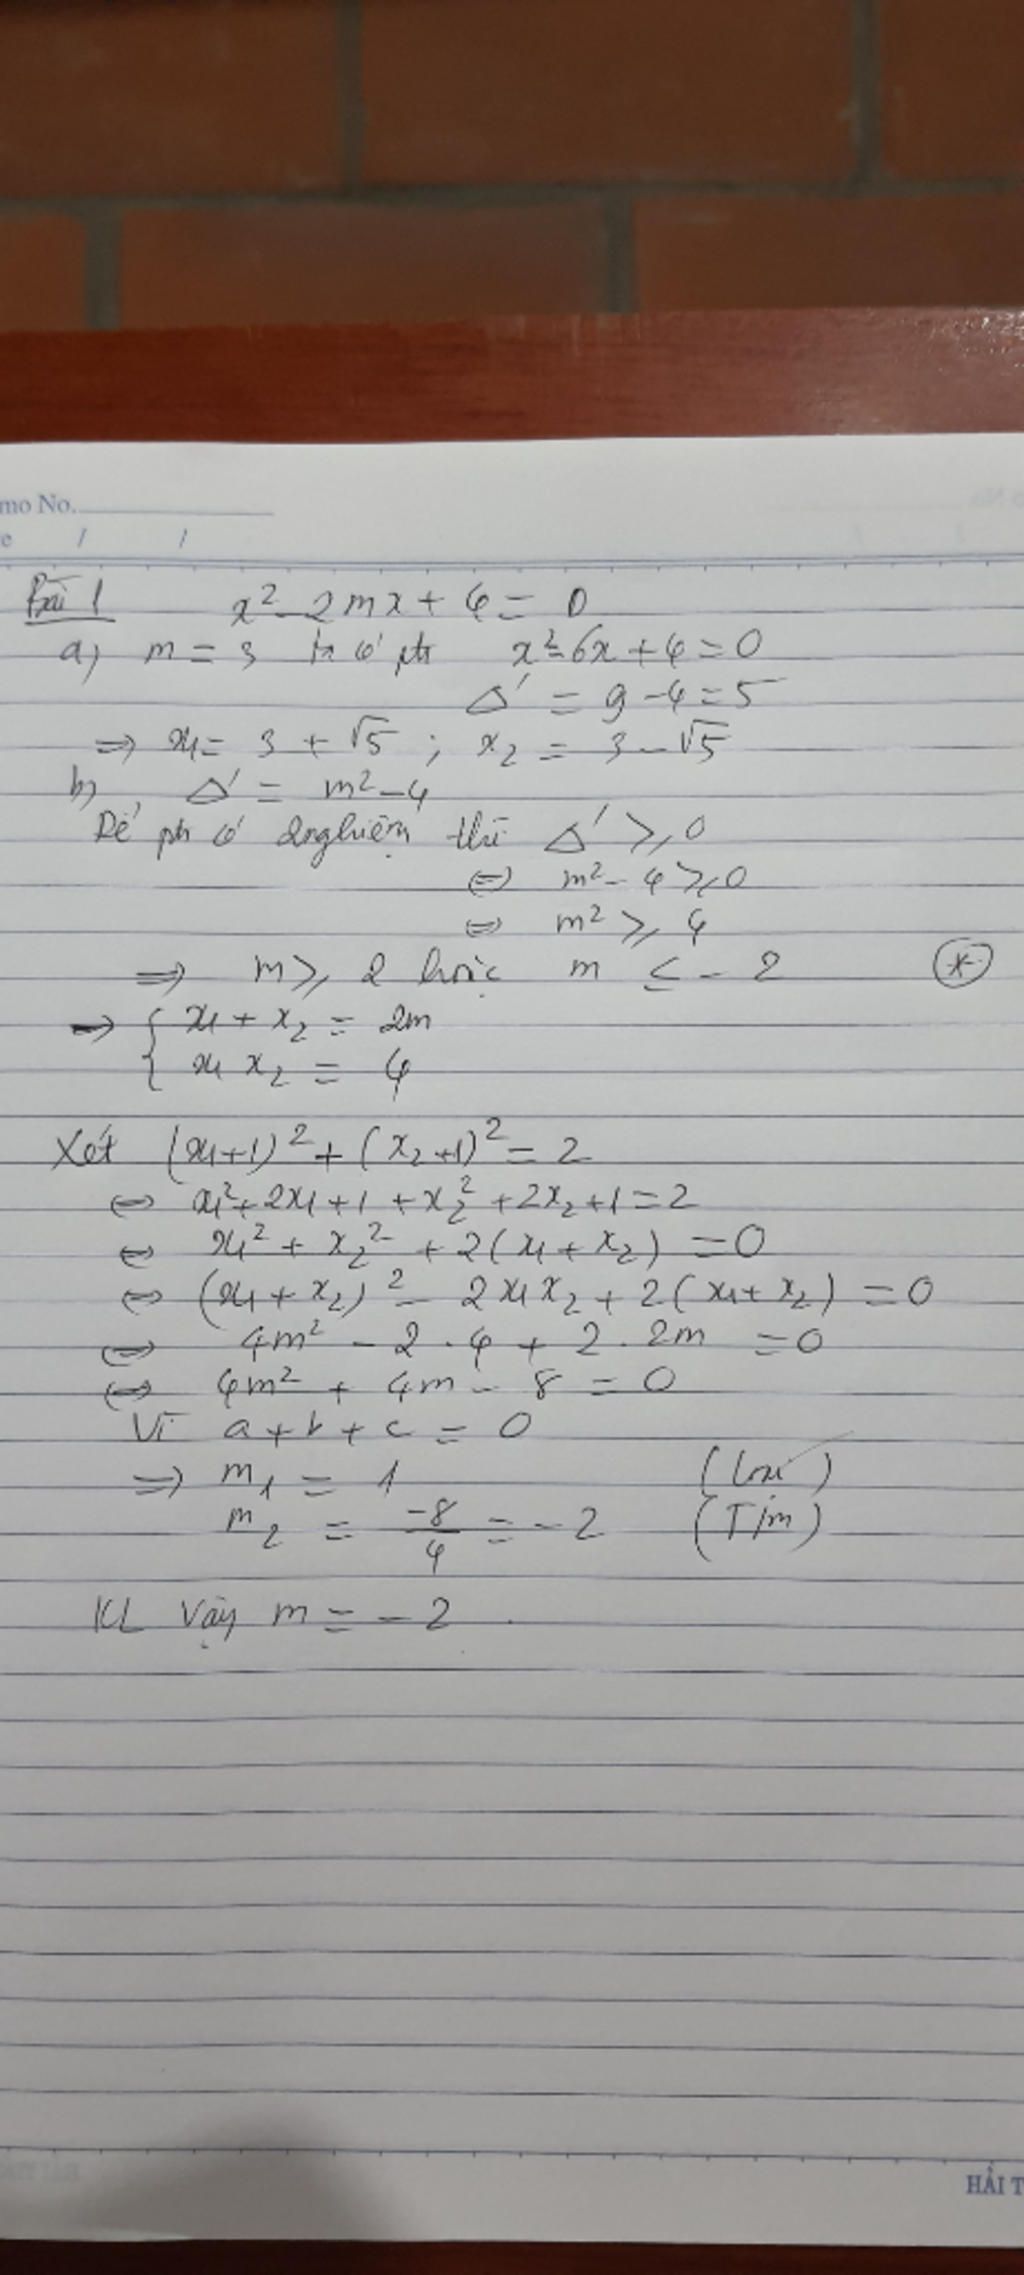 mo No.
e / /
Bài 1 x² - 2mx + 4 = 0
a) m = 3 ta có pt x² - 6x + 4 = 0
Δ' = 9 - 4 = 5
=> x₁ = 3 + √5 ; x₂ = 3 - √5
b) Δ' = m² - 4
Để pt có 2 nghiệm thì Δ' ≥ 0
<=> m² - 4 ≥ 0
<=> m² ≥ 4
=> m ≥ 2 hoặc m ≤ - 2 (*)
=> { x₁ + x₂ = 2m
x₁ x₂ = 4
Xét (x₁+1)² + (x₂+1)² = 2
<=> x₁² + 2x₁ + 1 + x₂² + 2x₂ + 1 = 2
<=> x₁² + x₂² + 2(x₁ + x₂) = 0
<=> (x₁ + x₂)² - 2x₁x₂ + 2(x₁ + x₂) = 0
<=> 4m² - 2 . 4 + 2 . 2m = 0
<=> 4m² + 4m - 8 = 0
Vì a + b + c = 0
=> m₁ = 1 (loại)
m₂ = -8/4 = -2 (T/m)
KL Vậy m = - 2 .
HẢI T